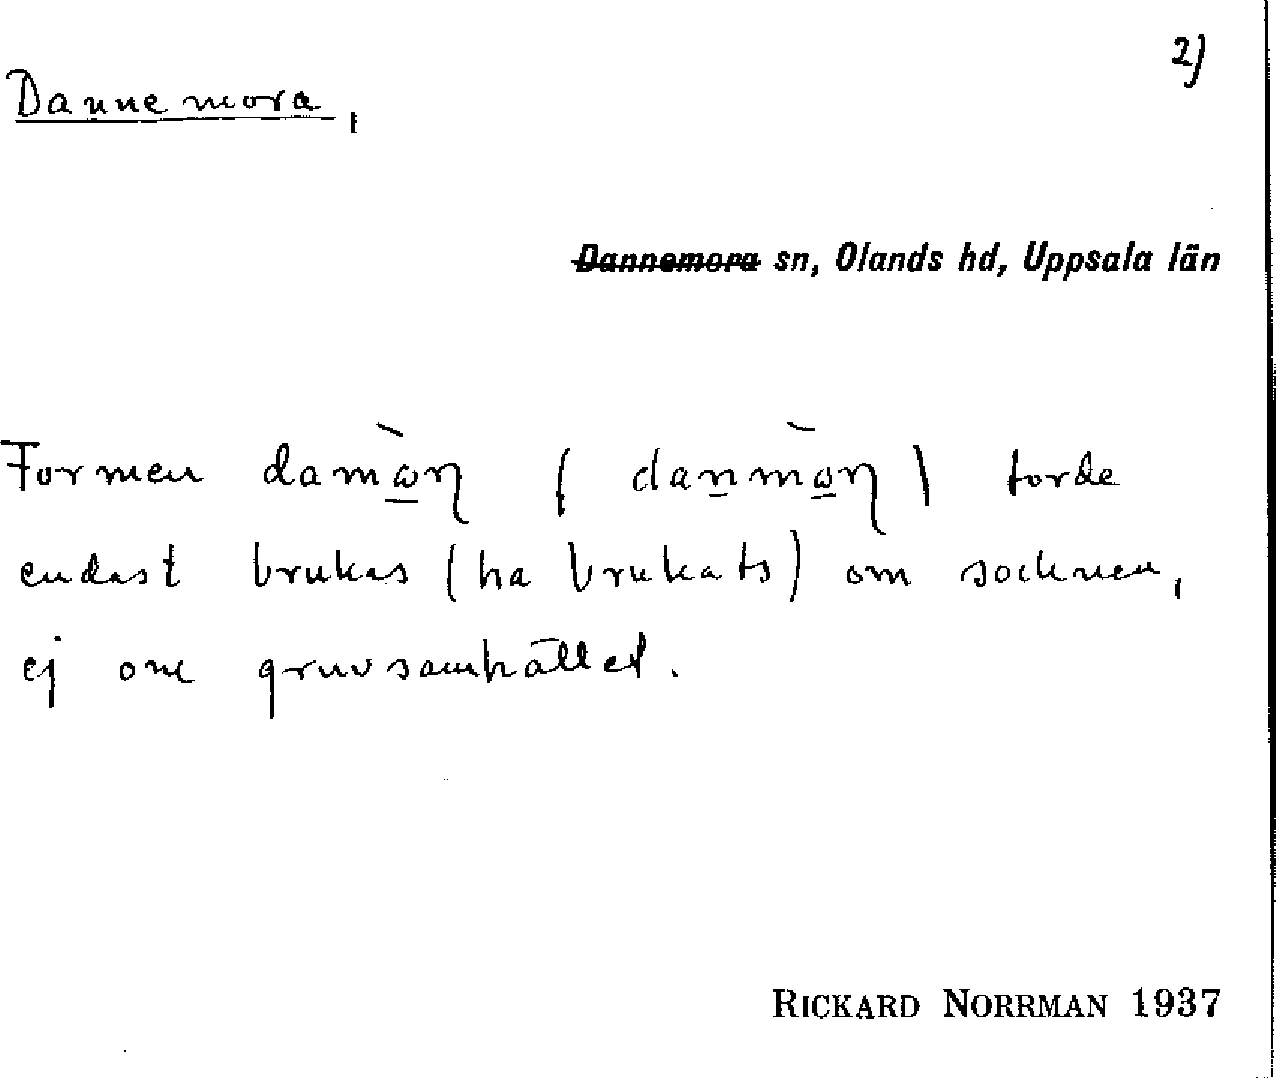 2)
Dannemora,
Dannemora sn, Olands hd, Uppsala län
Formen damὼ̲ŋ (dan̲mὼ̲ŋ) torde
endast brukas (ha brukats) om socknen,
ej om gruvsamhället.
RICKARD NORRMAN 1937